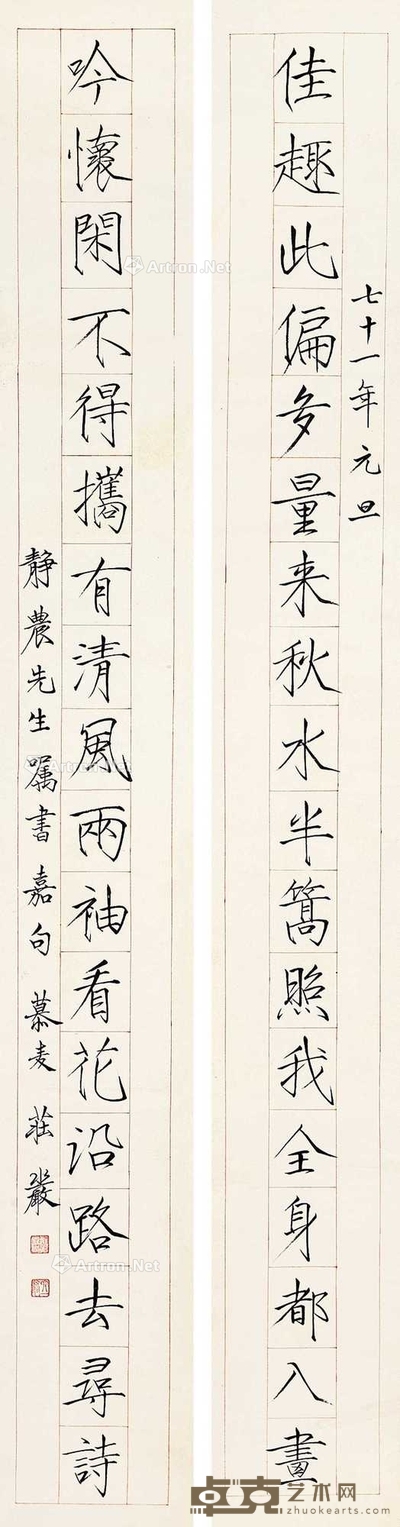 七十一年元旦
佳趣此偏多量来秋水半篙照我全身都入畫
吟懷閑不得攜有清風兩袖看花沿路去尋詩
靜農先生嘱書嘉句 慕麦 莊嚴
Artron.Net
Artron.Net
Artron.Net
Artron.Net
卓克艺术网
zhuokearts.com